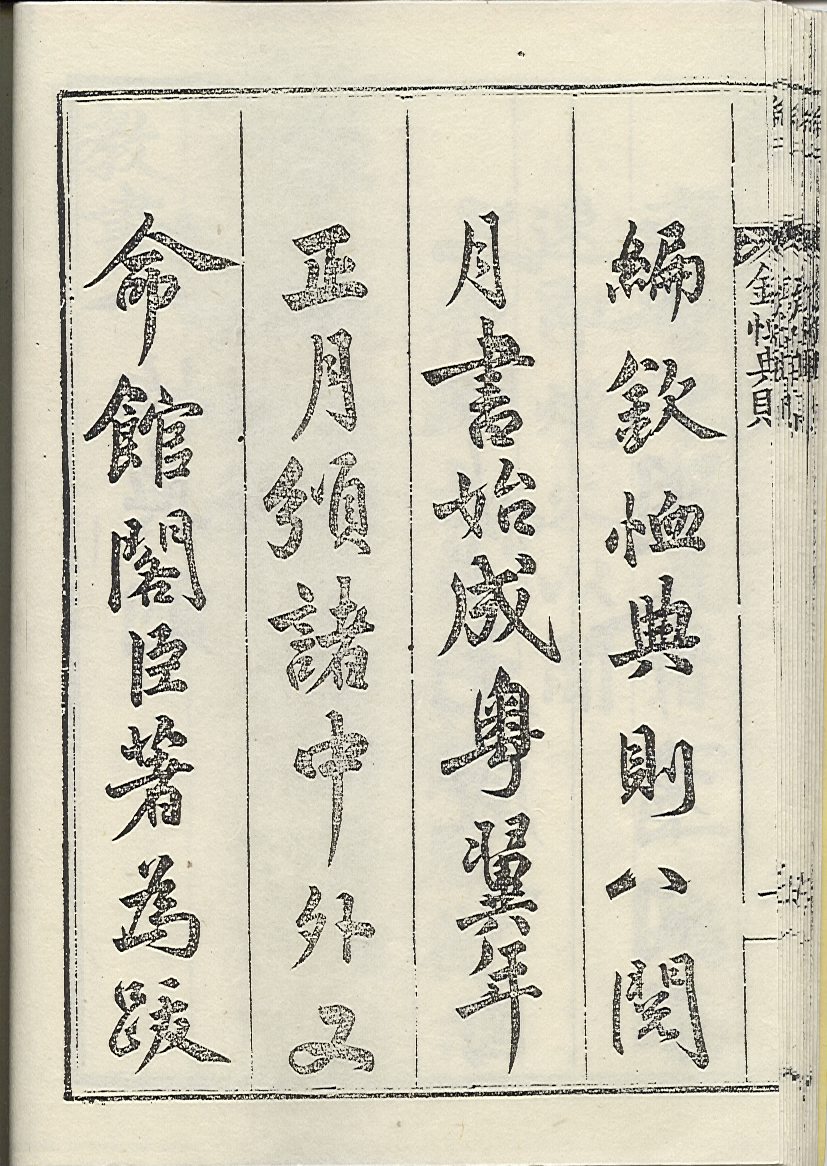 編欽恤典則八閱
月書始成粵翼年
正月頒諸中外又
命館閣臣著為跋